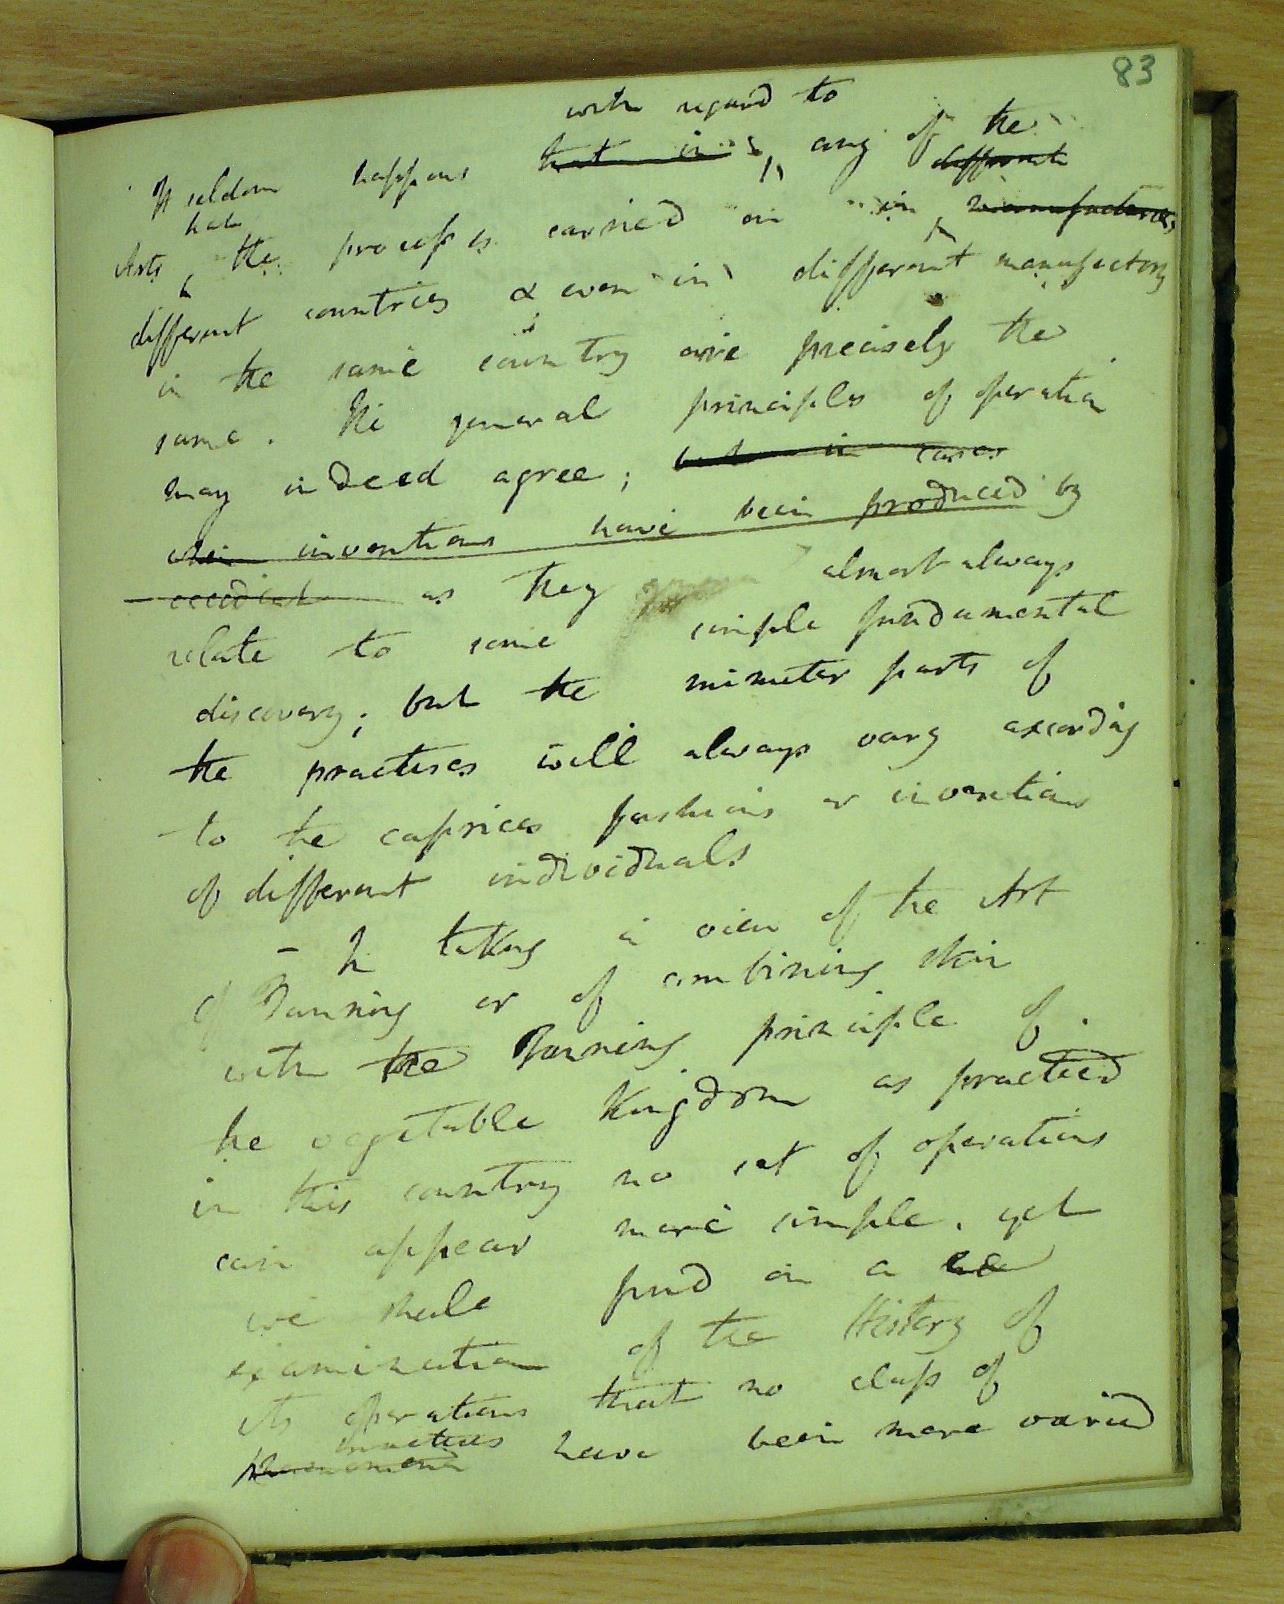 83
with regard to
It seldom happens that in any of the
different
Arts that the processes carried on in manufactories
different countries & even in different manufactory
in the same country are precisely the
same. The general principles of operation
may indeed agree; but in cases
when inventions have been produced by
accident as they almost always
relate to some simple fundamental
discovery; but the minuter parts of
the practises will always vary according
to the caprices fashions or inventions
of different individuals
– In taking a view of the Art
of Tanning or of combining skin
with the Tanning principle of
the vegetable Kingdom as practised
in this country no set of operations
can appear more simple, yet
we shall find on a
examination of the History of
its operations that no class of
practices
phenomena have been more varied